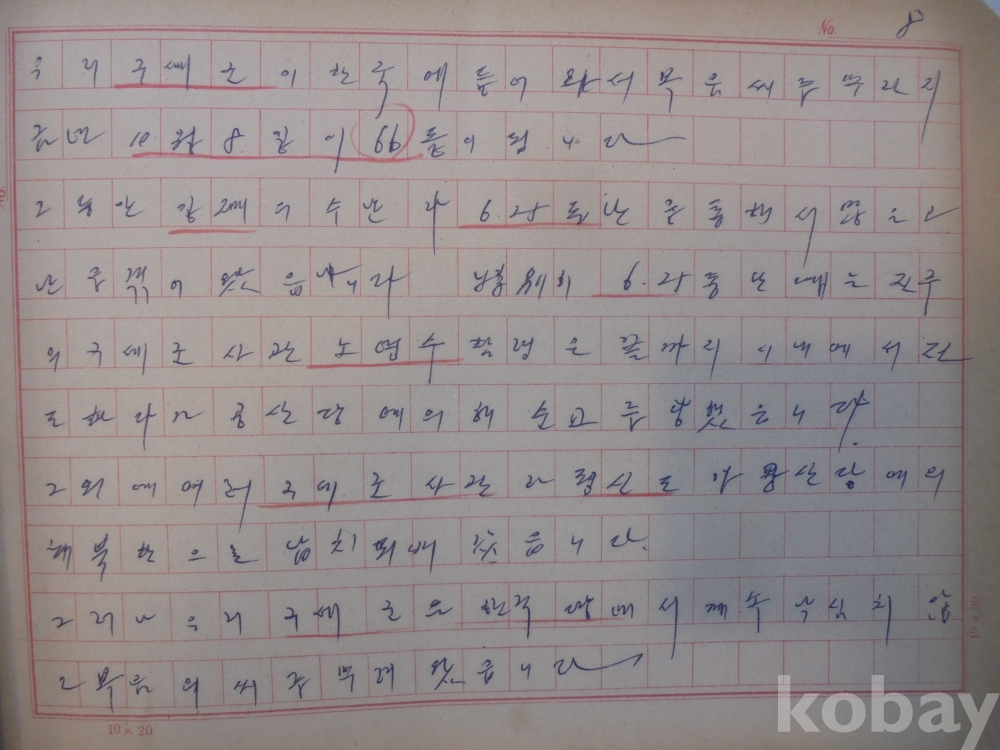 No. 8
우리 구세군이 한국에 들어와서 복음씨를 뿌리지
금년 10월 8일이 66돌이 됩니다
그동안 일제의 수난과 6.25동난을 통해서 많은 고
난을 겪어 왔읍니다 6.25동난 때는 진주
의 구세군 사관 노영수 참령은 끝까지 시내에서 전
도하다가 공산당에 의해 순교를 당했읍니다.
그외에 여러 구세군 사관과 령신도가 공산당에 의
해 북한으로 납치되어 갔읍니다.
그러나 우리 구세군은 한국 땅에서 계속 낙심치 않
고 복음의 씨를 뿌려 왔읍니다
10 × 20
kobay